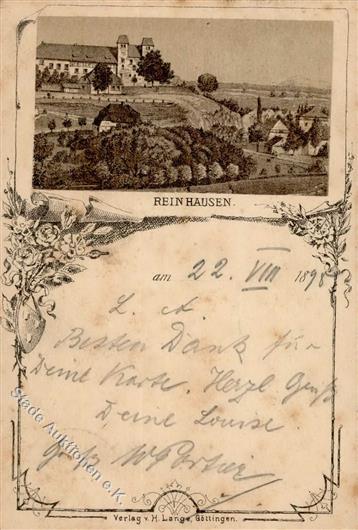 REINHAUSEN.
am 22. VIII 1898
L. A.
Besten Dank für
Deine Karte. Herzl. Gruß
Deine Louise.
Gruß
Verlag v. H. Lange, Göttingen.
Stade Auktionen e.K.